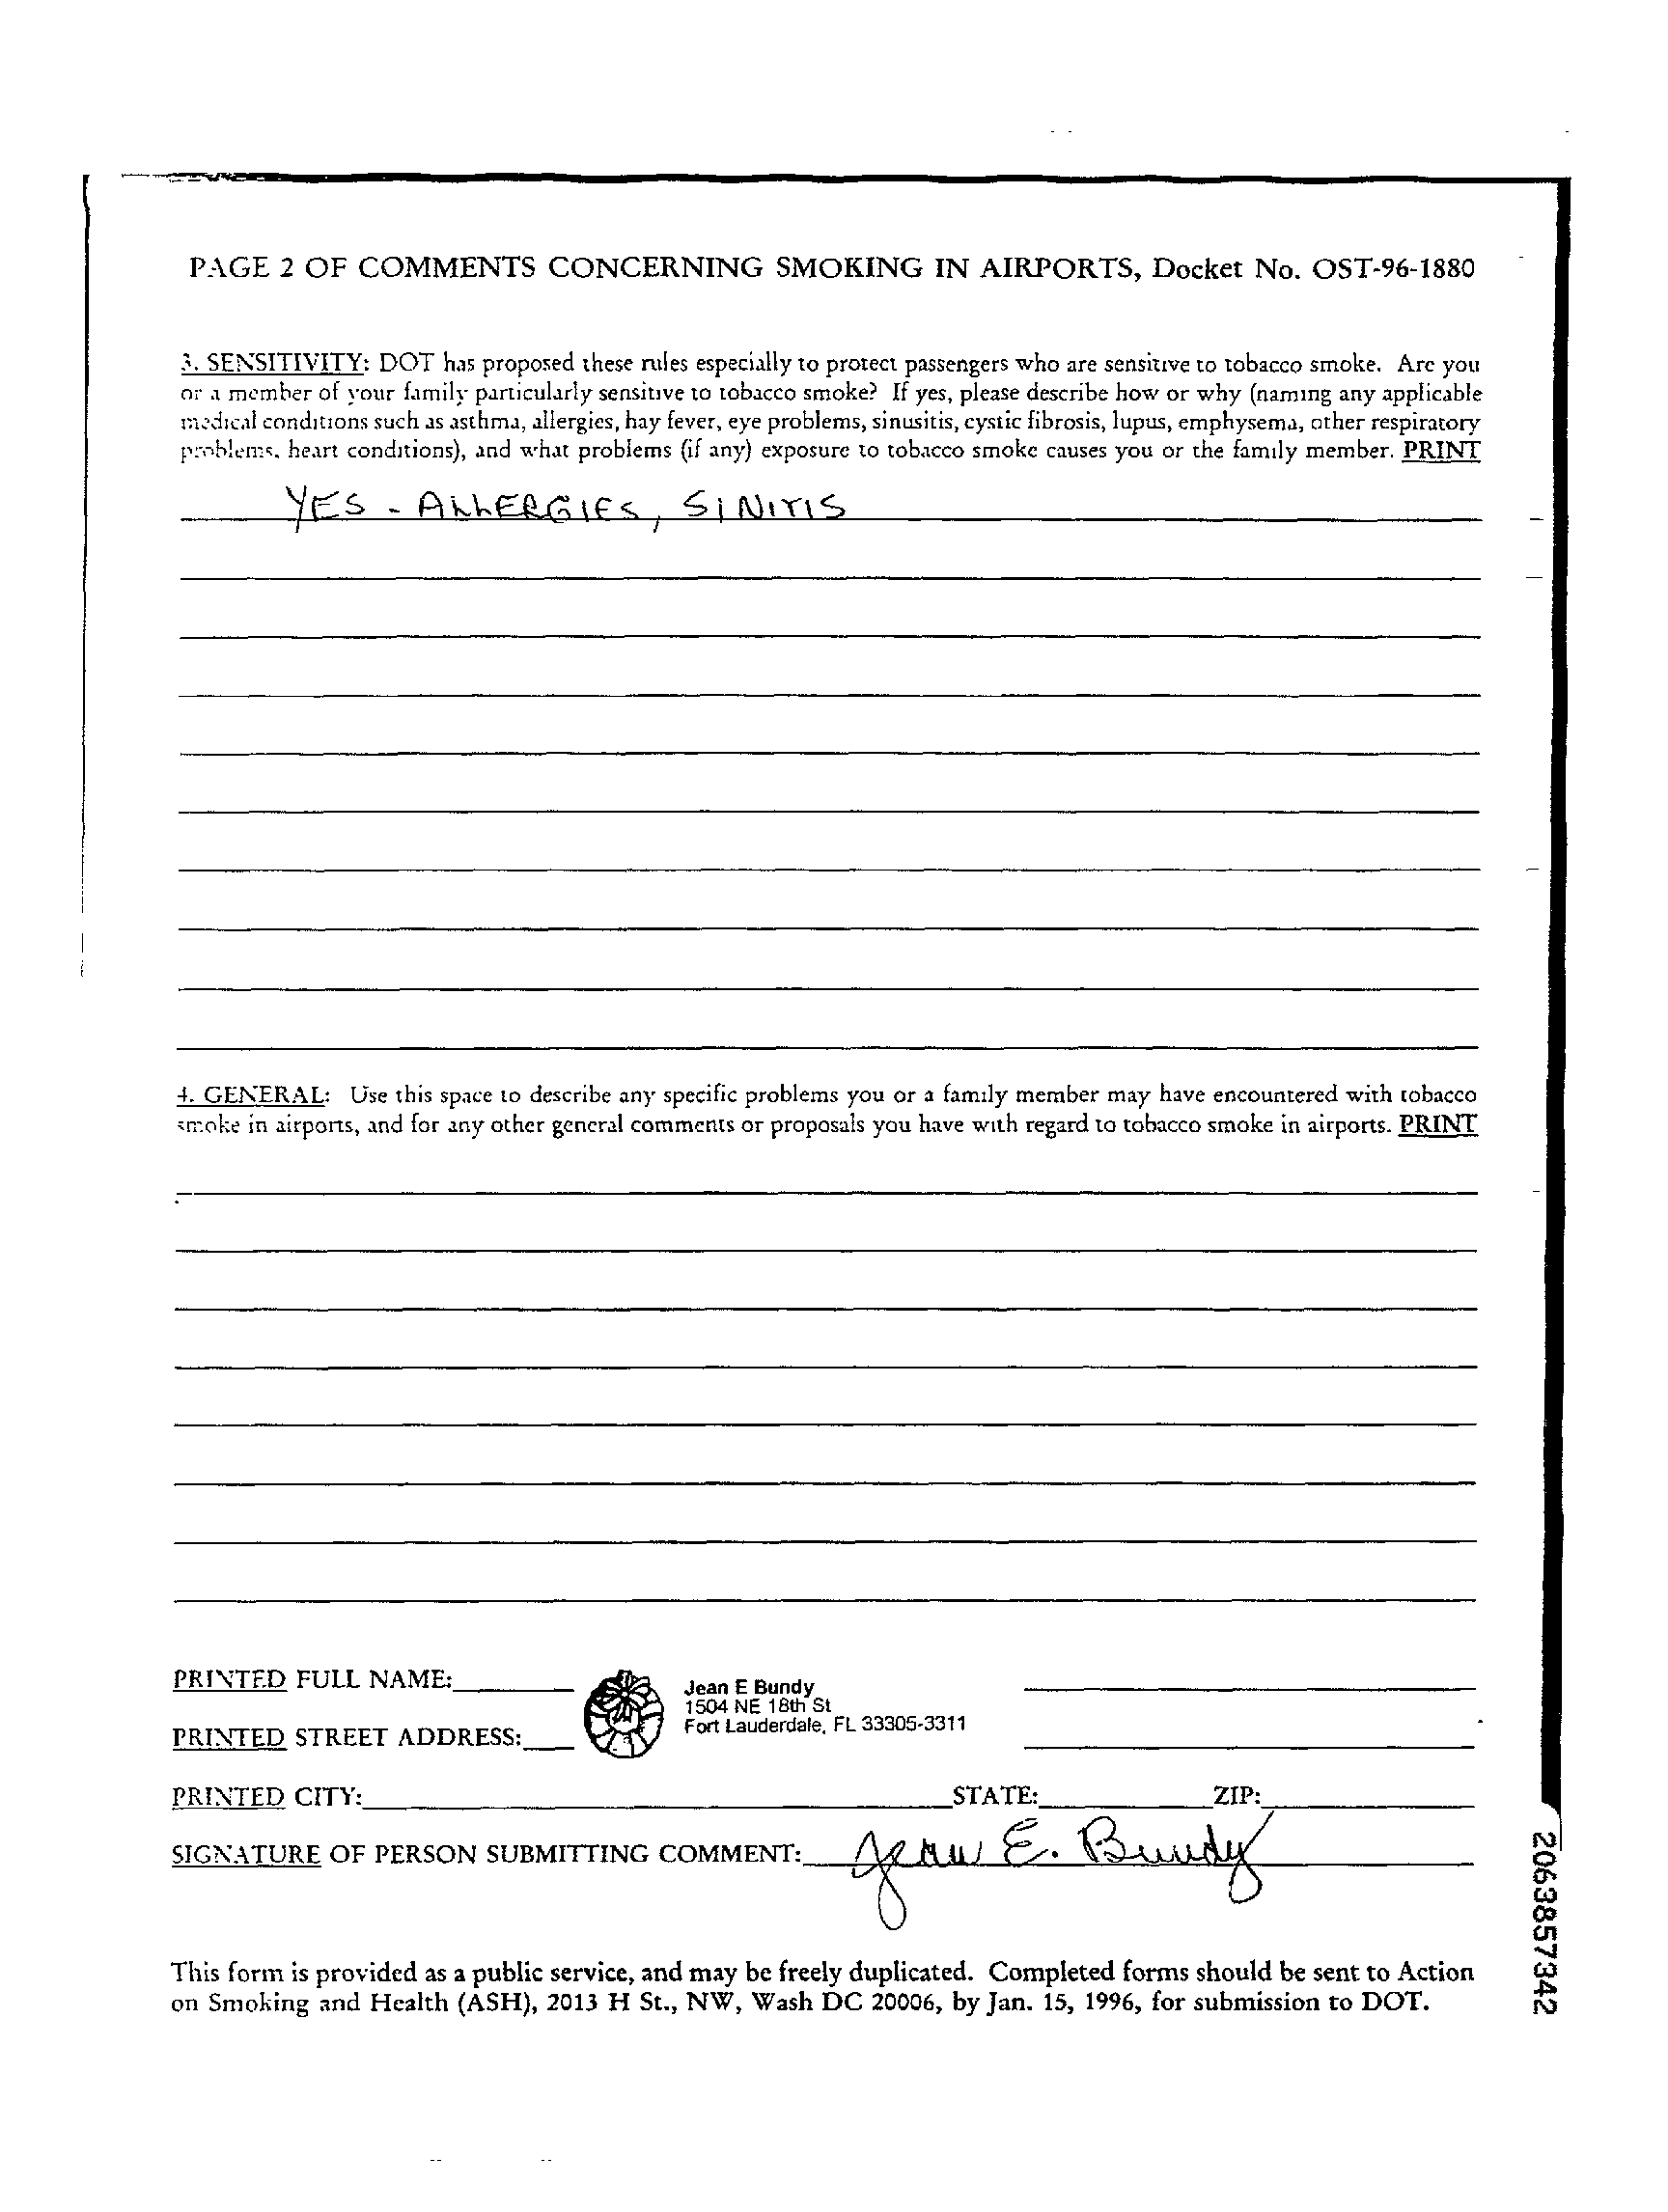 PAGE 2 OF COMMENTS CONCERNING SMOKING IN AIRPORTS, Docket No. OST-96-1880
3. SENSITIVITY: DOT has proposed these rules especially to protect passengers who are sensitive to tobacco smoke. Are you
or a member of your family particularly sensitive to tobacco smoke? If yes, please describe how or why (naming any applicable
medical conditions such as asthma, allergies, hay fever, eye problems, sinusitis, cystic fibrosis, lupus, emphysema, other respiratory
problems, heart conditions), and what problems (if any) exposure to tobacco smoke causes you or the family member. PRINT
YES - ALLERGIES, SINITIS
4. GENERAL: Use this space to describe any specific problems you or a family member may have encountered with tobacco
smoke in airports, and for any other general comments or proposals you have with regard to tobacco smoke in airports. PRINT
PRINTED FULL NAME:
Jean E Bundy
1504 NE 18th St
Fort Lauderdale, FL 33305-3311
PRINTED STREET ADDRESS:
PRINTED CITY: STATE: ZIP:
SIGNATURE OF PERSON SUBMITTING COMMENT: Jean E. Bundy
This form is provided as a public service, and may be freely duplicated. Completed forms should be sent to Action
on Smoking and Health (ASH), 2013 H St., NW, Wash DC 20006, by Jan. 15, 1996, for submission to DOT.
2063857342